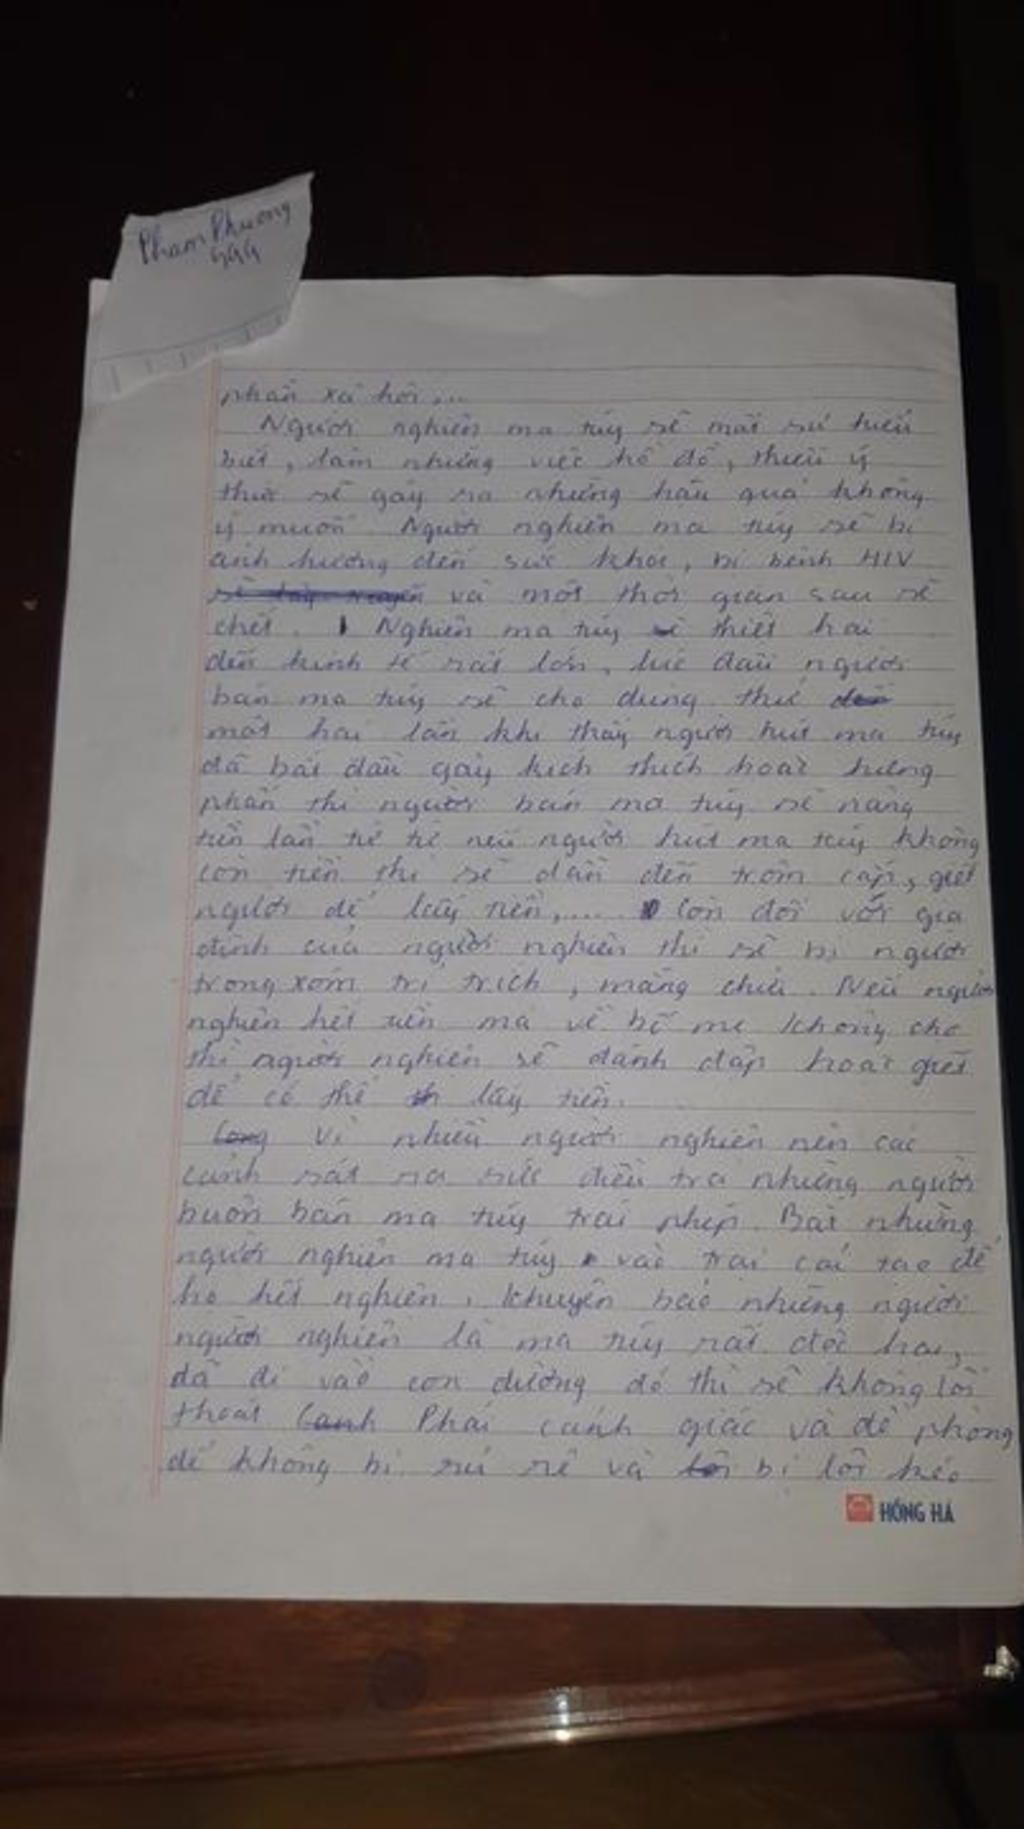 Phạm Phương
499
phần xã hội,...
Người nghiện ma túy sẽ mất sự hiểu
biết, làm những việc hồ đồ, thiếu ý
thức sẽ gây ra những hậu quả không
ý muốn. Người nghiện ma túy sẽ bị
ảnh hưởng đến sức khỏe, bị bệnh HIV
và một thời gian sau sẽ
chết. Nghiện ma túy thiệt hại
đến kinh tế rất lớn, lúc đầu người
bán ma túy sẽ cho dùng thử
một hai lần khi thấy người hút ma túy
đã bắt đầu gây kích thích hoặc hưng
phấn thì người bán ma túy sẽ nâng
tiền lần từ từ nếu người hút ma túy không
còn tiền thì sẽ dẫn đến trộm cắp, giết
người để lấy tiền,..... Còn đối với gia
đình của người nghiện thì sẽ bị người
trong xóm trỉ trích, mắng chửi. Nếu người
nghiện hết tiền mà về bố mẹ không cho
thì người nghiện sẽ đánh đập hoặc giết
để có thể lấy tiền.
Vì nhiều người nghiện nên các
cảnh sát ra sức điều tra những người
buôn bán ma túy trái phép. Bắt những
người nghiện ma túy vào trại cải tạo để
họ hết nghiện, khuyên bảo những người
người nghiện là ma túy rất độc hại,
đã đi vào con đường đó thì sẽ không lối
thoát Phải cảnh giác và đề phòng
để không bị rủ rê và bị lôi kéo
HỒNG HÀ